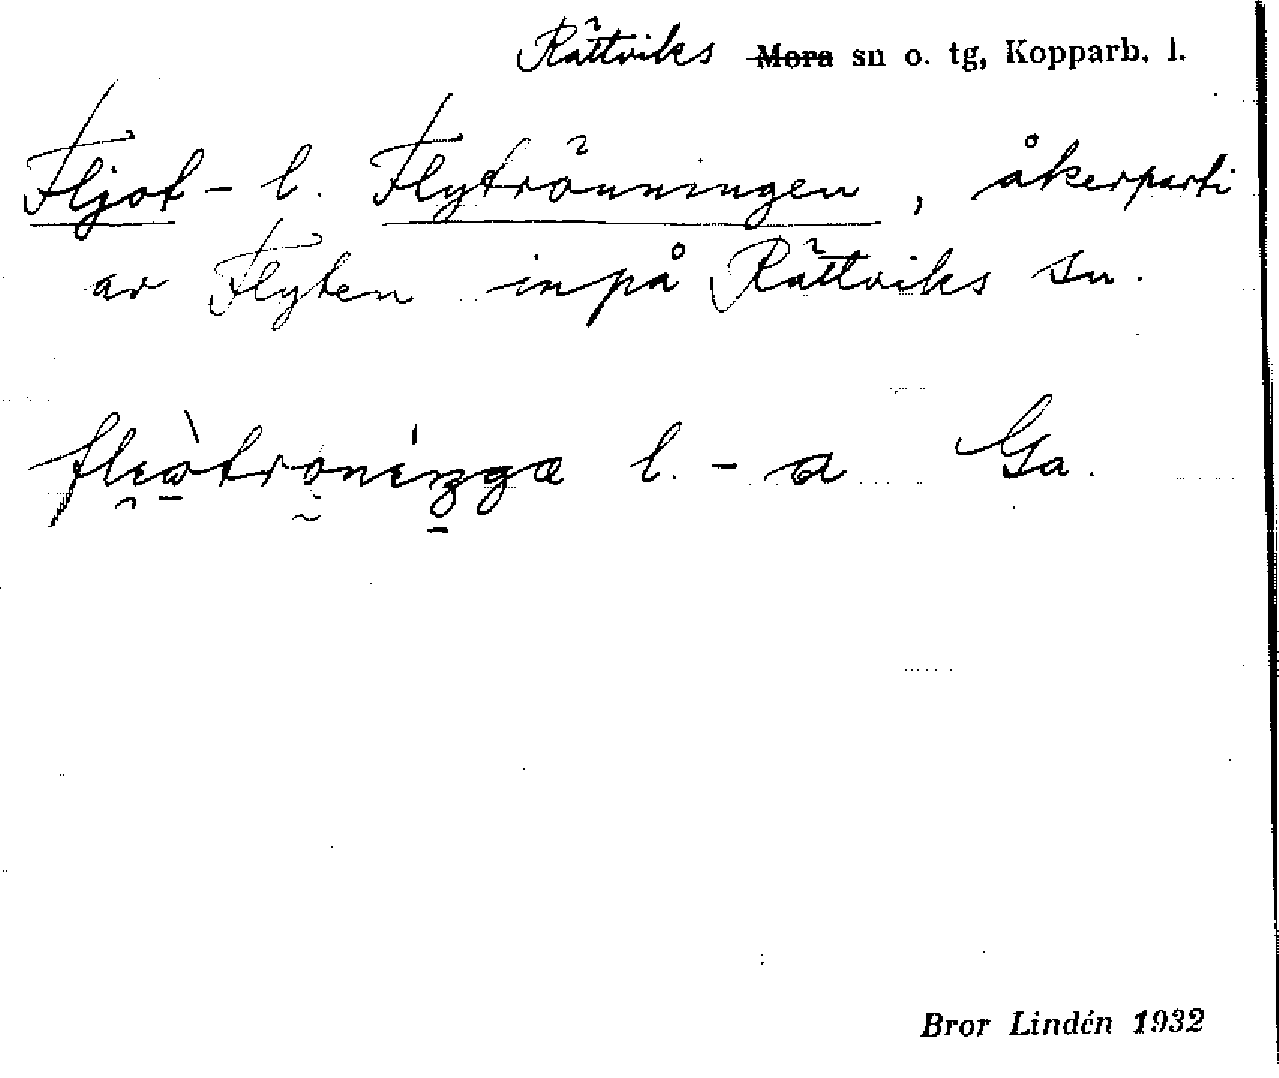 Rättviks ~~Mora~~ sn o. tg, Kopparb. l.
Fljot- l. Flytrönningen, åkerparti
av Flyten inpå Rättviks sn.
l. - a Ga.
Bror Lindén 1932